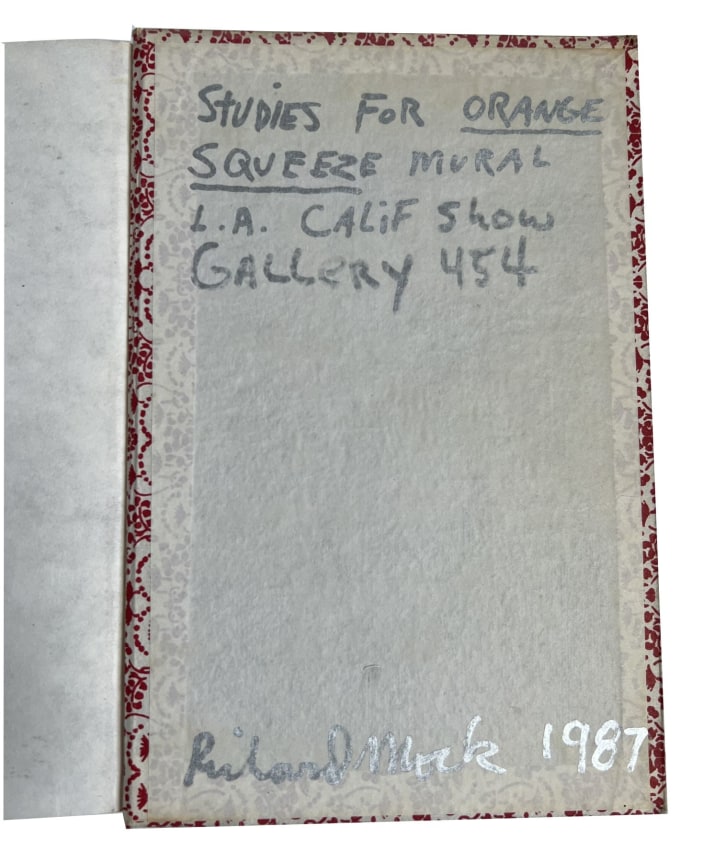 STUDIES FOR ORANGE
SQUEEZE MURAL
L.A. CALiF Show
GALLERY 454
Richard Mock 1987